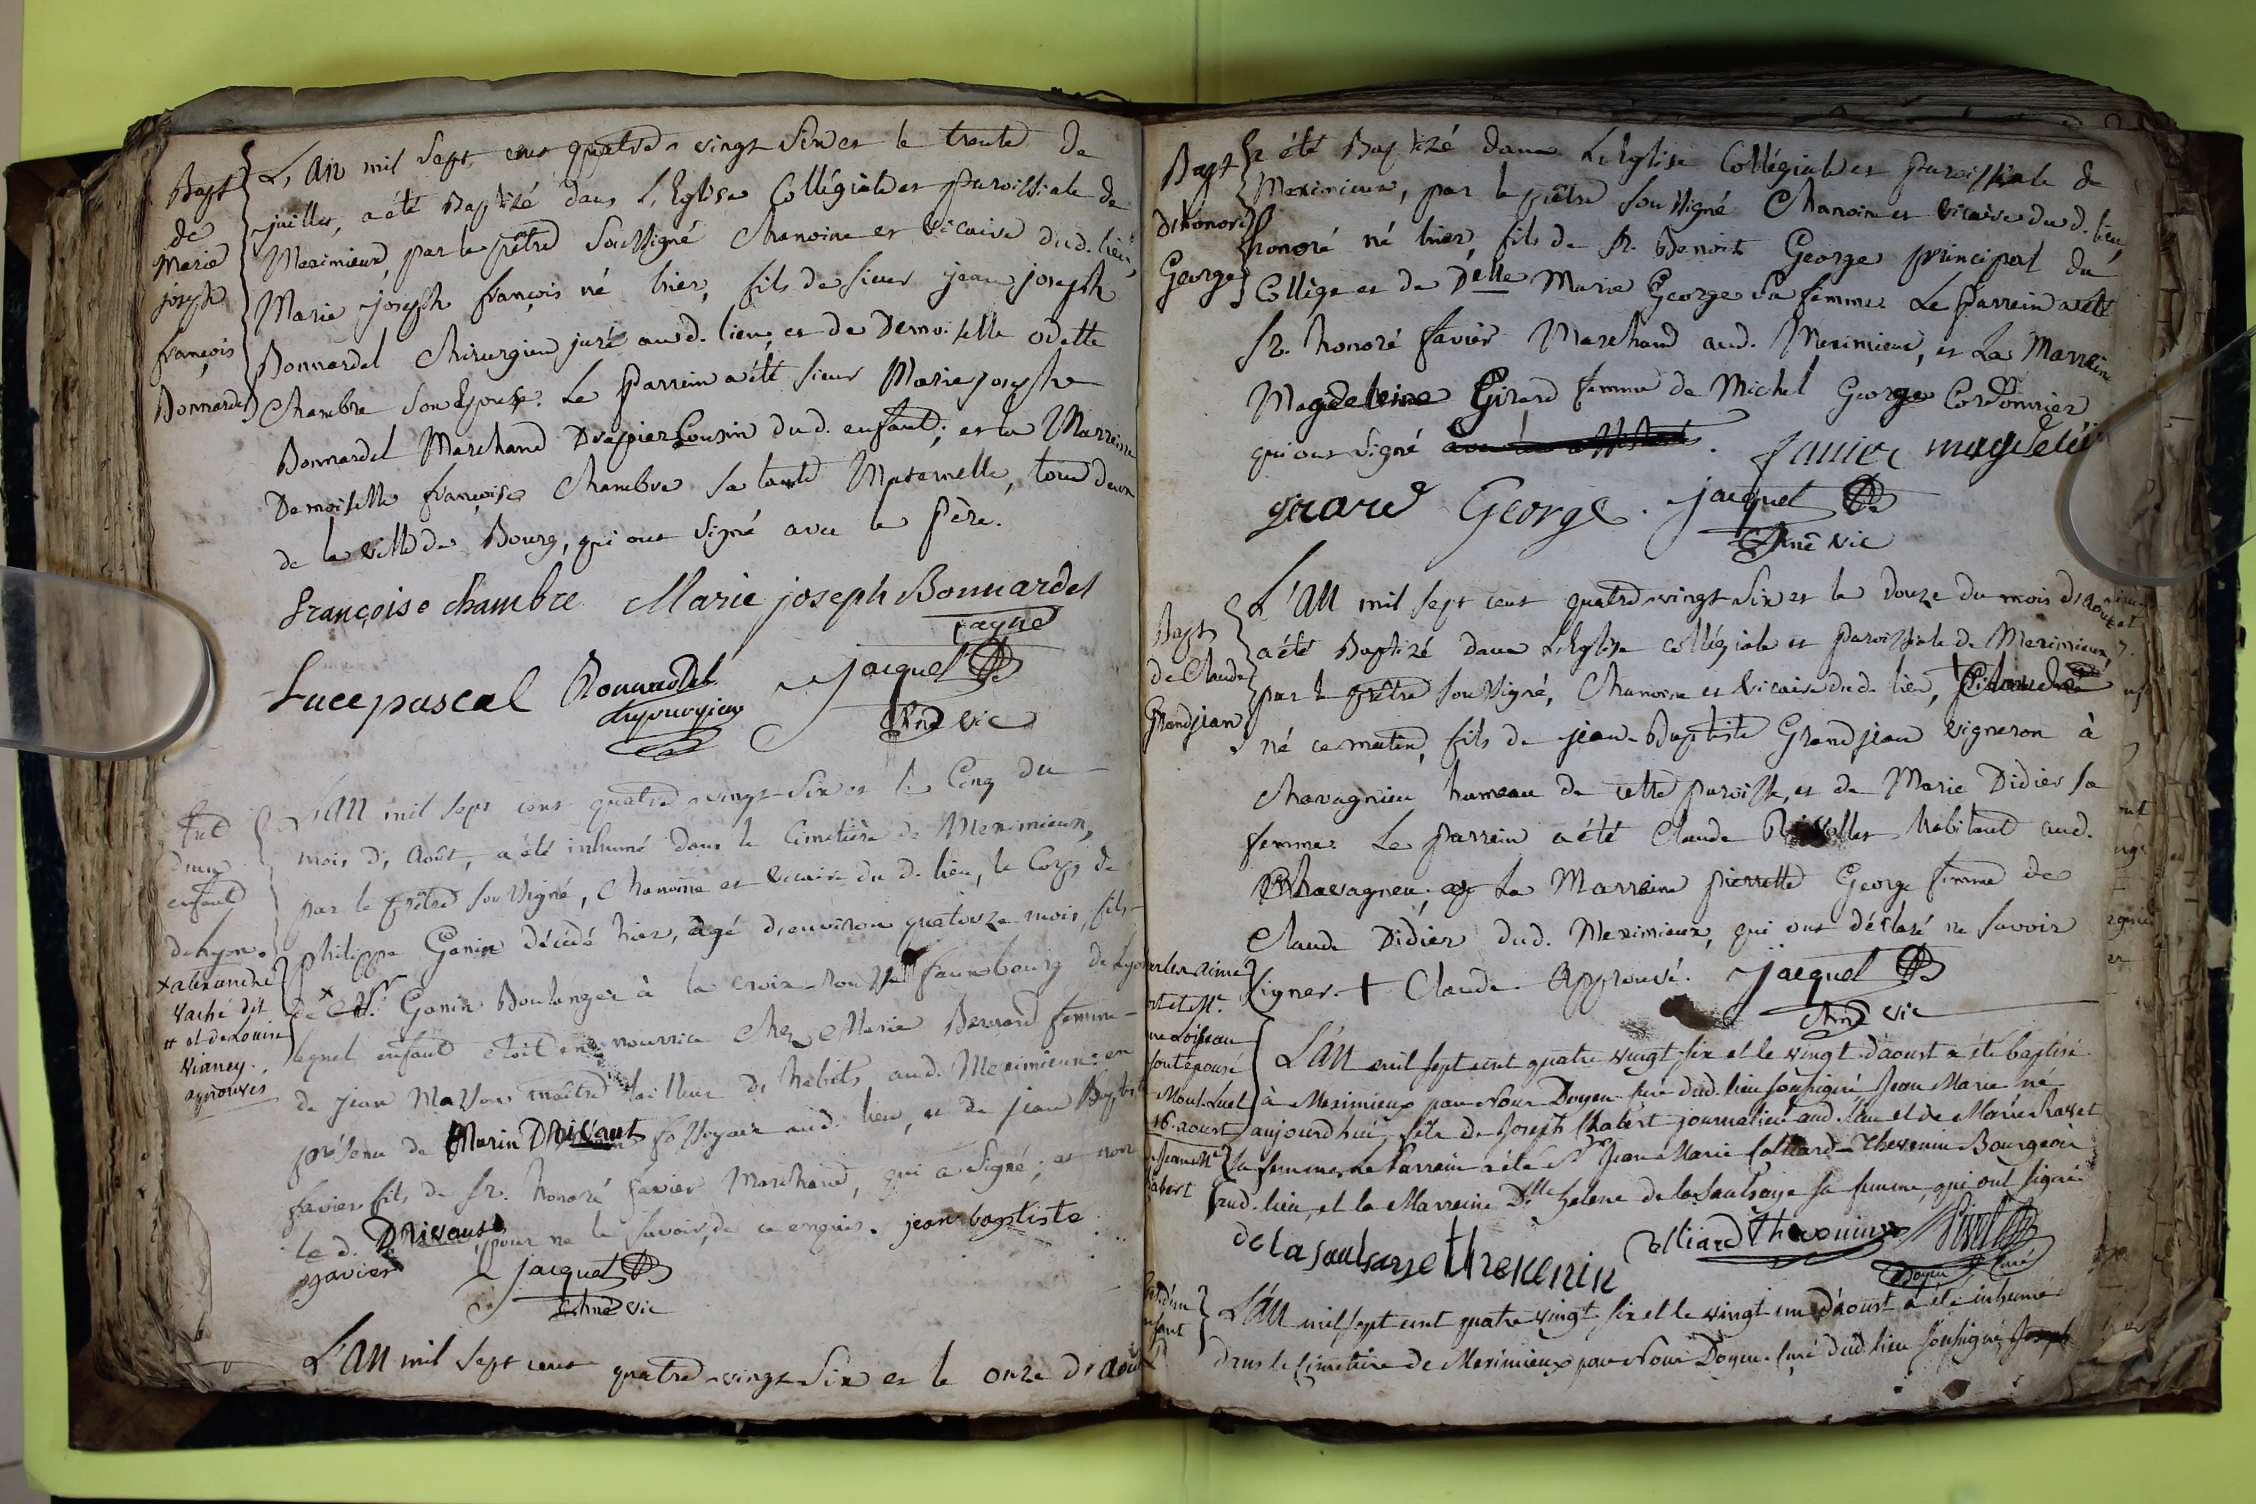 Bapt
de
Marie
joseph
françois
Bonnardel
L'An mil sept cent quatre-vingt Six et le trente de
juillet, a été Baptizé dans L'Eglise Collégiale et paroissiale de
Meximieux, par le prêtre Soussigné Chanoine et Vicaire dud. lieu,
Marie joseph françois né hier, fils de sieur jean joseph
Bonnardel Chirurgien juré aud. lieu, et de Demoiselle odette
Chambre Son Epouse. Le Parrein a été sieur Marie joseph
Bonnardel Marchand Drapier Cousin dud. enfant; et la Marreine
Demoiselle françoise Chambre sa tante Maternelle, tous deux
de la Ville de Bourg, qui ont Signé avec le père.
françoise chambre Marie joseph Bonnardel
Luce pascal Bonnardel jacquet
chirurgien Chne Vic
enfant
de lyon.
x alexandre
Vaché dit
# et de Louise
Vianey.
approuvés
L'AN mil sept cent quatre-vingt-Six et le Cinq du
mois d'Août, a été inhumé dans le Cimetière de Meximieux,
par le prêtre Soussigné, Chanoine et Vicaire du d. lieu, le Corps de
philippe Ganin décédé hier, agé d'environ quatorze mois, fils
de x Ganin Boulanger à la croix-Rousse faux bourg de Lyon
lequel enfant étoit en nourrice chez Marie Bernard femme
de jean Masson maître tailleur d'habits aud. Meximieux: en
présence de Marin Drivaut fossoyair aud. lieu, et de jean Baptiste
favier fils de Sr. honoré favier Marchand, qui a Signé; et non
le d. Drivaut pour ne le Savoir, de ce enquis. jean baptiste
favier jacquet
Chne Vic
L'AN mil Sept cent quatre-vingt-Six et le onze d'août
Bapt
D'honoré
George
a été Baptizé dans L'Eglise Collégiale et paroissiale de
Meximieux, par le prêtre Soussigné Chanoine et Vicaire du d. lieu,
honoré né hier, fils de Sr. Benoit George principal du
Collège et de Delle Marie George Sa femme. Le Parrein a été
Sr. honoré favier Marchand aud. Meximieux, et La Marreine
Magdeleine Girard femme de Michel George Cordonnier
qui ont Signé. favier magdelei
girard George. jacquet
Chne Vic
Bapt
de Claude
Grandjean
L'AN mil sept cent quatre-vingt-Six et le Douze du mois d'aout
a été Baptizé dans L'Eglise collégiale et paroissiale de Meximieux,
par le prêtre Soussigné, Chanoine et Vicaire dud. lieu, +
né ce matin, fils de jean-Baptiste Grandjean Vigneron à
Chavagnieu hameau de cette paroisse, et de Marie Didier sa
femme. Le parrein a été Claude habitant aud.
Chavagneu, et La Marreine pierrette George femme de
Claude Didier dud. Meximieux, qui ont déclaré ne Savoir
Signer. + Claude. Approuvé. jacquet
Chne Vic
ne Loiseau
ont épousé
Mont Luel
16. aoust
Jean Me
abert
L'AN mil sept cent quatre vingt-six et le vingt d'aoust a été baptisé
à Meximieux par Nous Doyen-curé dud. lieu soussigné, Jean Marie né
aujourd'hui, fils de Joseph Chabert journalier aud. lieu et de Marie chavet
sa femme, Le Parrein a été Sr Jean Marie Colliard-Thevenin Bourgeois
aud. lieu, et la Marreine Dlle helene de la Saulsaye sa femme, qui ont signé
de la Saulsaye thevenin Colliard Thevenin
Doyen curé
L'AN mil sept cent quatre vingt six et le vingt un d'aoust a été inhumé
dans le Cimetière de Meximieux par Nous Doyen-curé dud. lieu soussigné, Joseph